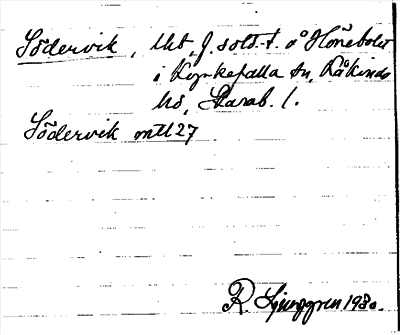 Södervik, tht, f. sold.-t. å Hönebolet
i Kyrkefalla sn, Kåkinds
hd, Skarab. l.
Södervik mtl 27
R. Ljunggren 1930.